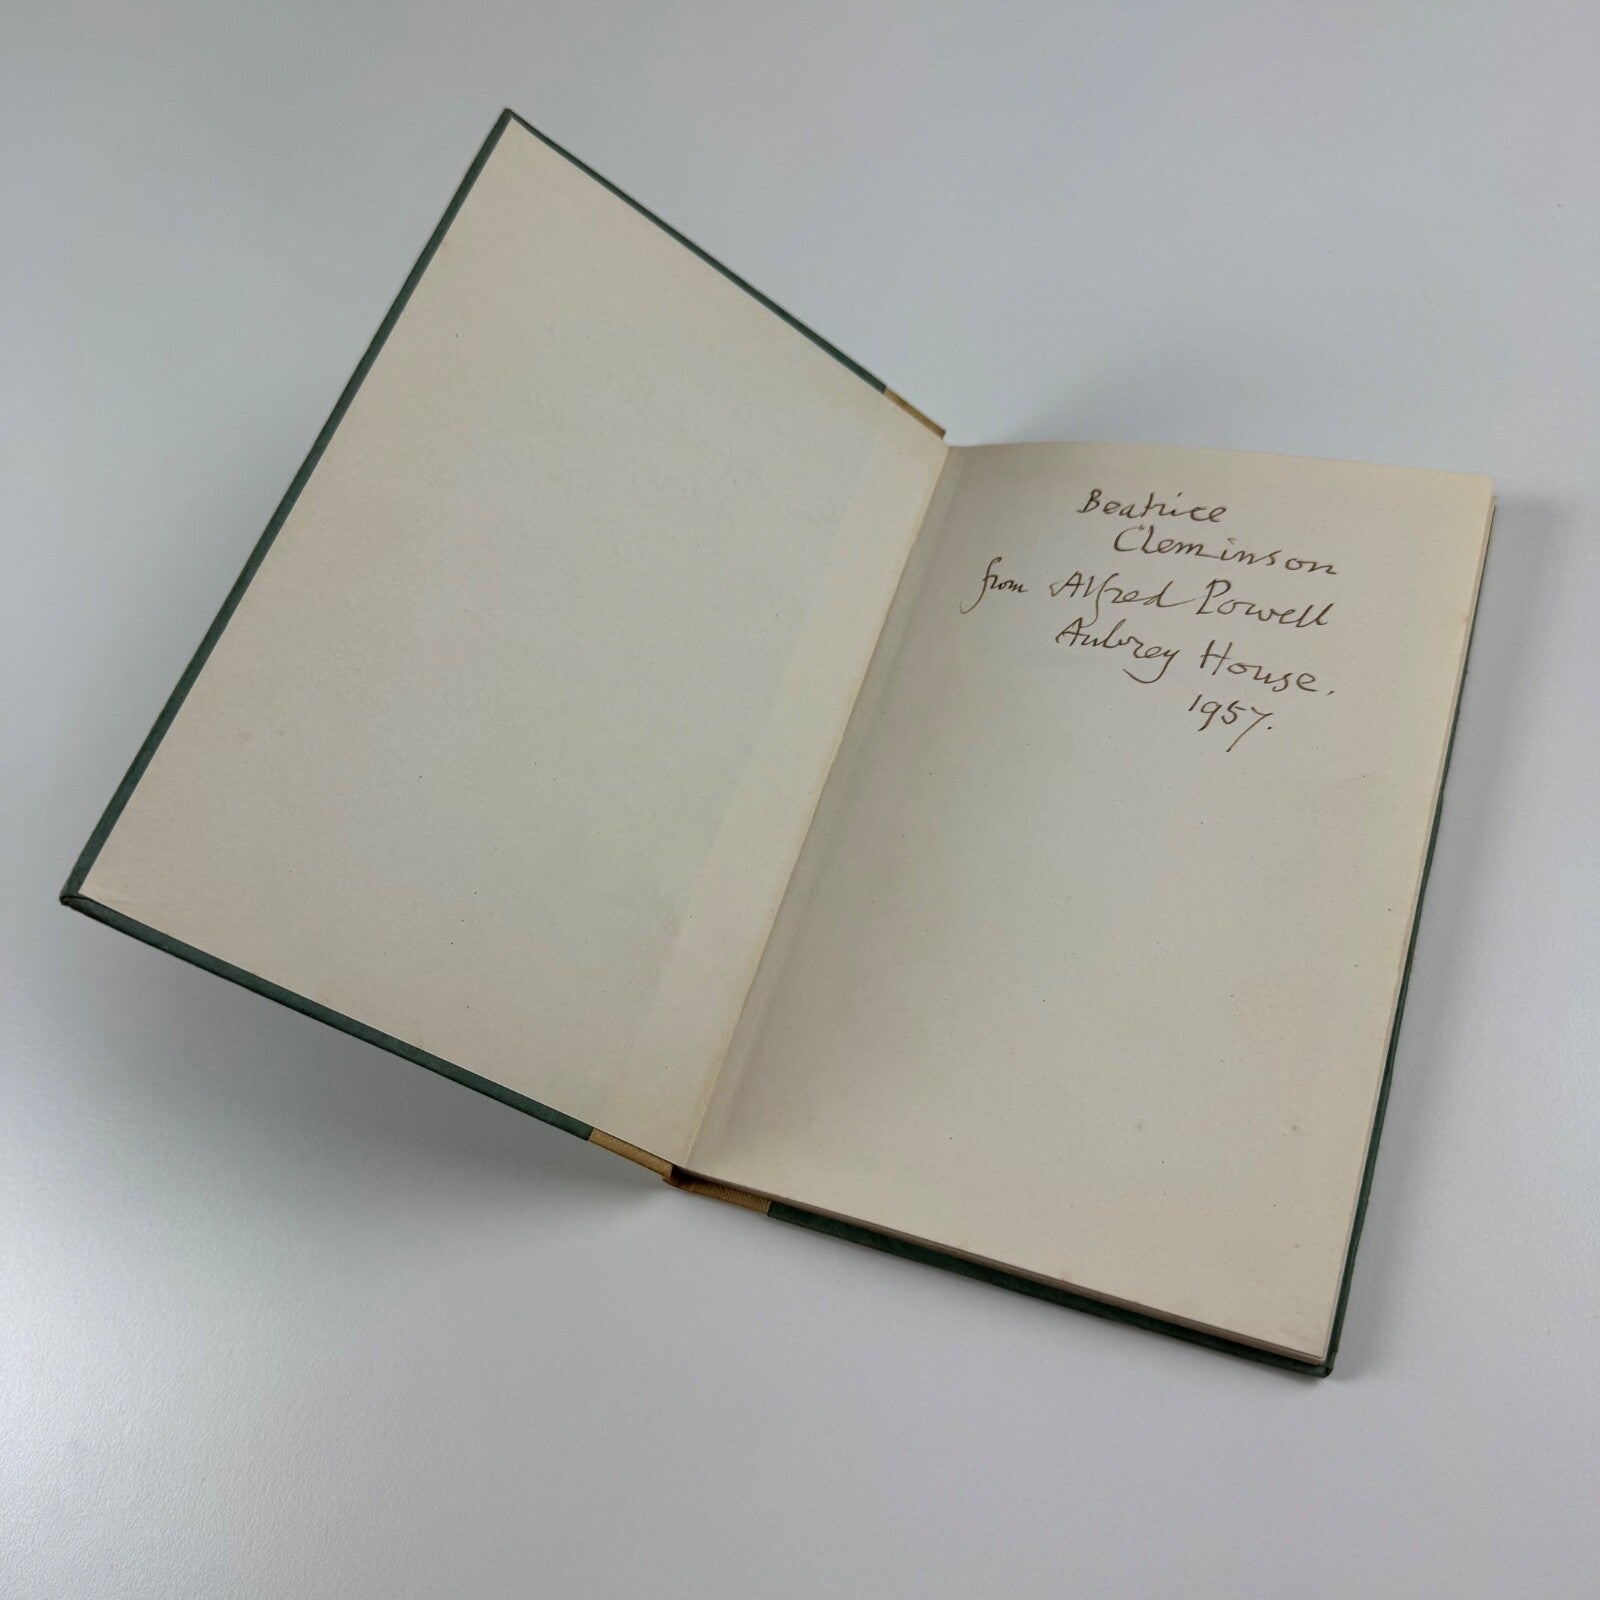 Beatrice
Cleminson
from Alfred Powell
Aubrey House.
1957.